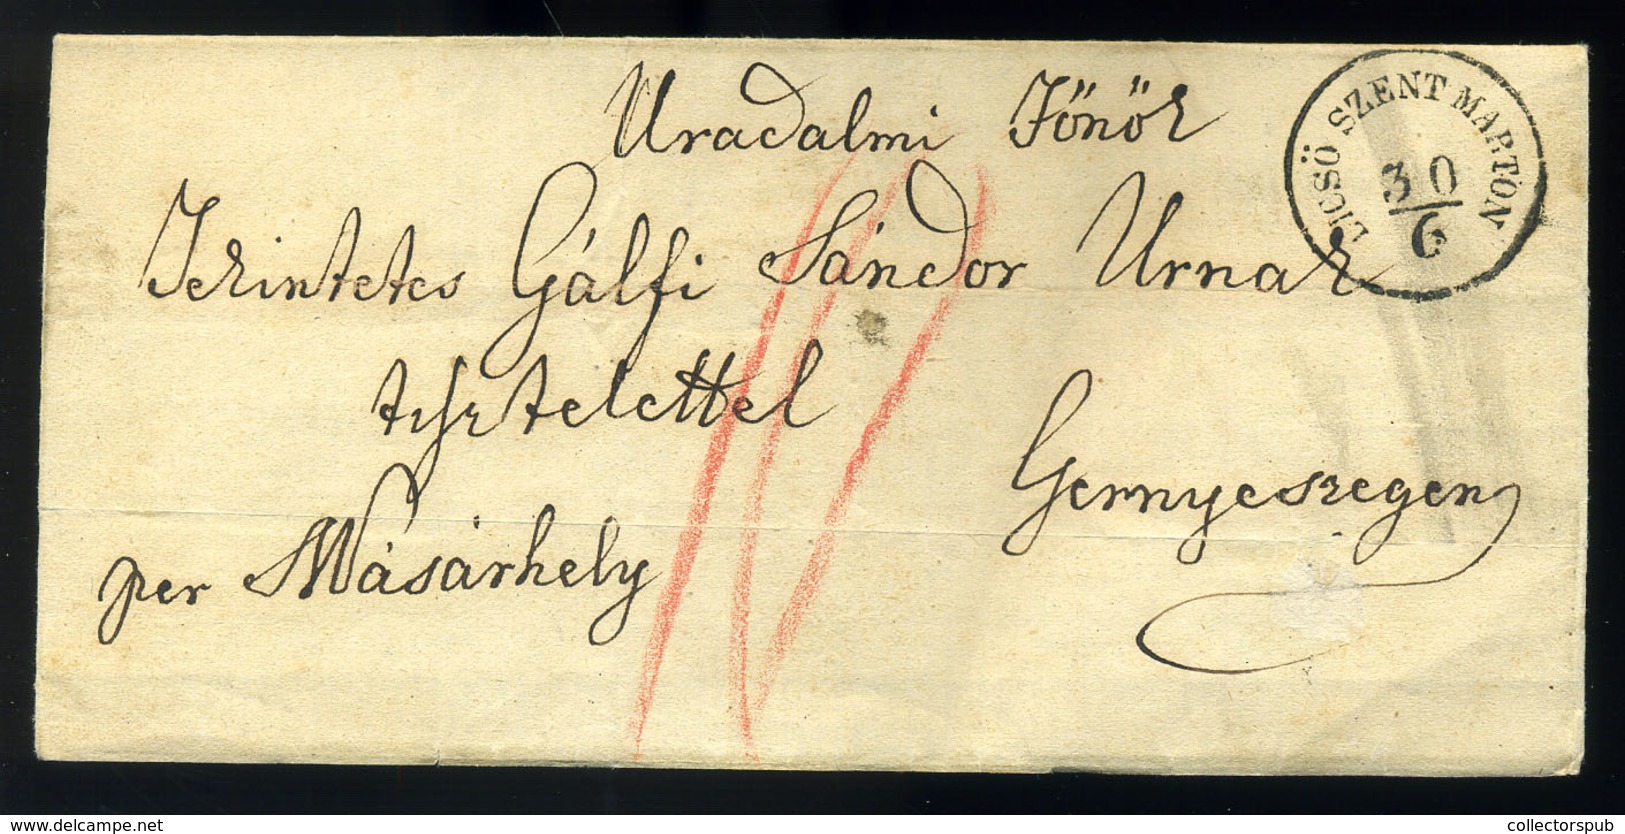 Uradalmi Főnök
Tekintetes Gálfi Sándor Urnak
tisztelettel
Gernyeszegen
per MVásárhely
DICSÖ SZENT MARTON
30
6
www.delcampe.net
collectorspub